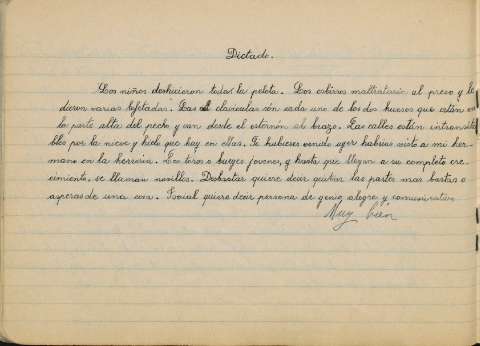 Dictado.
Los niños deshicieron toda la pelota. Los esbirros maltrataron al preso y le
dieron varias bofetadas. Las clavículas són cada uno de los dos huesos que están en
la parte alta del pecho y van desde el esternón al brazo. Las calles están intransita
bles por la nieve y hielo que hay en ellas. Si hubieses venido ayer habrias visto a mi her-
mano en la herrería. Los toros o bueyes jovenes, y hasta que llegan a su completo cre-
cimiento, se llaman novillos. Desbastar quiere decir quitar las partes mas bastas o
asperas de una cosa. Jovial quiere decir persona de genio alegre y comunicativo
Muy bien